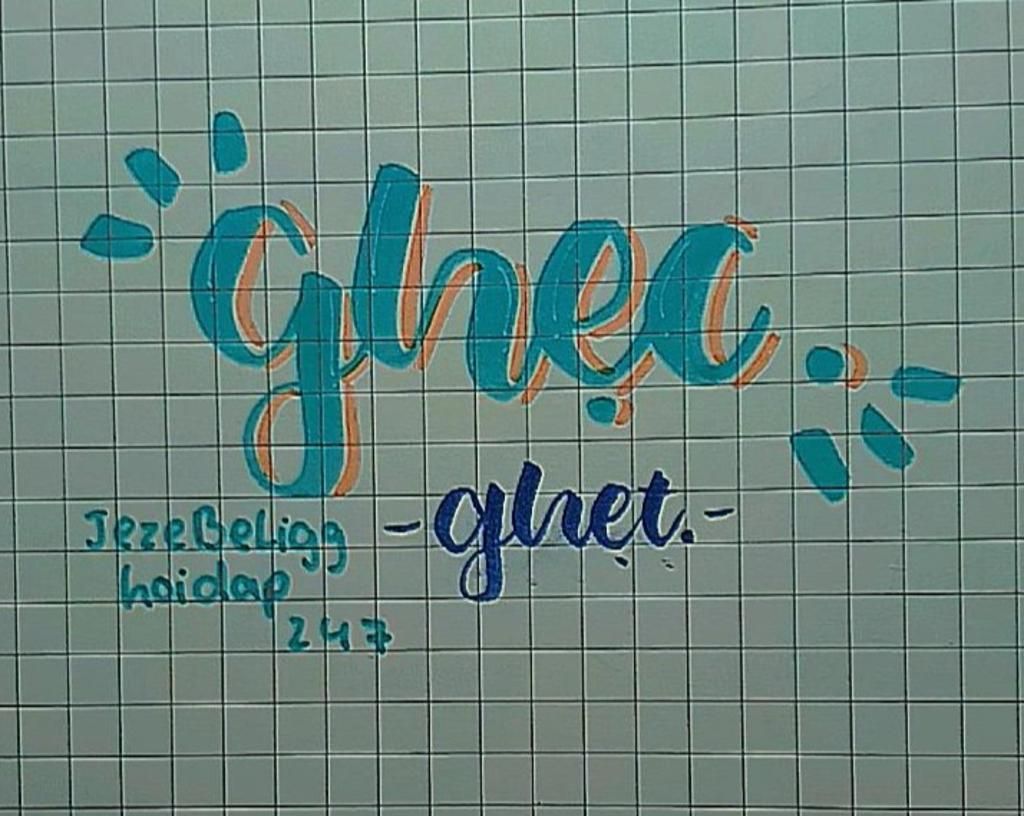 ghẹc.
-ghẹt.-
JezeBeLigg
hoidap
247